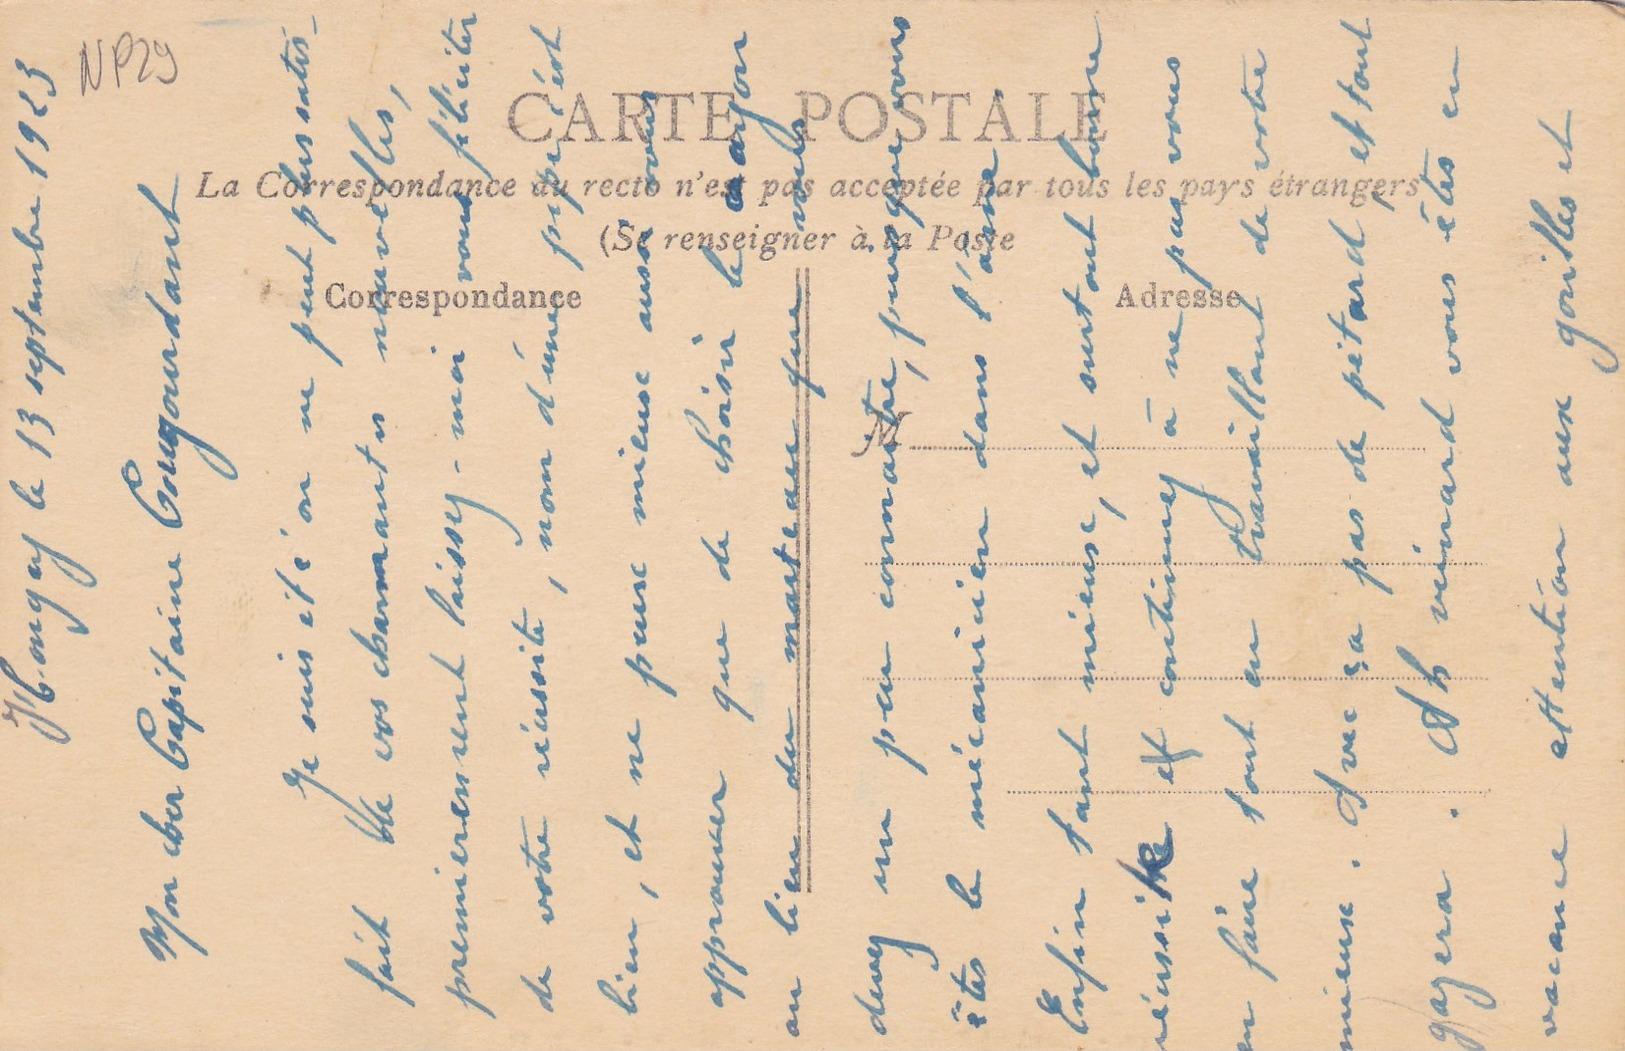 NP29
CARTE POSTALE
La Correspondance au recto n'est pas acceptée par tous les pays étrangers
(Se renseigner à la Poste
Correspondance
Adresse
M
le 13 septembre 1923
Mon cher Capitaine
Je suis été on ne peut plus satis-
fait de vos charmantes nouvelles,
premièrement laissez-moi vous féliciter
de votre réussite, nom d'une pipe c'est
bien, et ne peux mieux aussi vous
approuver que de choisir le crayon
au lieu du marteau que vous
devez un peu connaître, puisque vous
êtes le mécanicien dans l'âme.
Enfin tant mieux, et surtout bonne
réussite et continuez à ne pas vous
en faire tout en travaillant de votre
mieux. Avec ça pas de pétard et tout
gazera. Ah veinard vous êtes en
vacance attention aux gosilles et